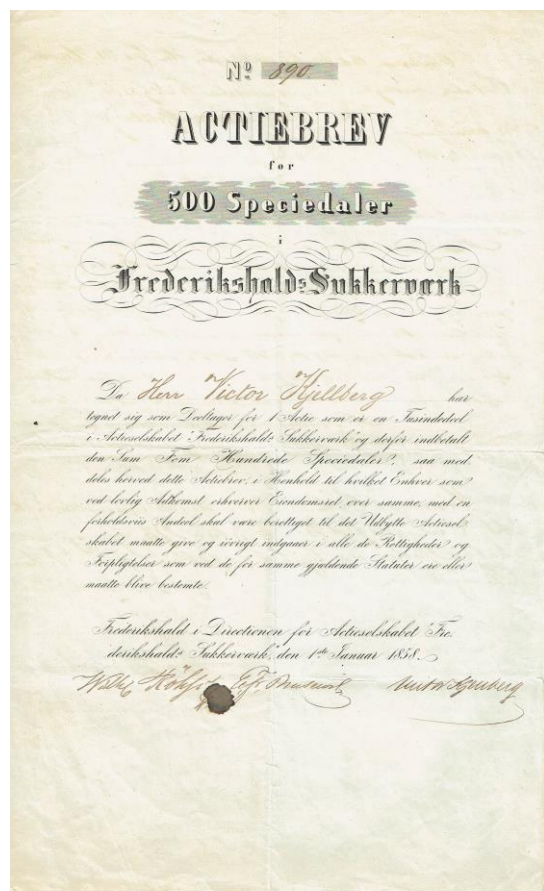 Nº 890.
ACTIEBREV
for
500 Speciedaler
i
Frederikshalds Sukkerværk
Da Herr Victor Kjellberg har
tegnet sig som Deeltager for 1 Actie som er en Tusindedeel
i Actieselskabet "Frederikshalds Sukkerværk" og derfor indbetalt
den Sum Fem Hundrede Speciedaler, saa med-
deles herved dette Actiebrev, i Henhold til hvilket Enhver som
ved lovlig Adkomst erhverver Eiendomsret over samme, med en
forholdsviis Andeel skal være berettiget til det Udbytte Actiesel-
skabet maatte give og iövrigt indgaaer i alle de Rettigheder og
Forpligtelser som ved de for samme gjældende Statuter ere eller
maatte blive bestemte.
Frederikshald i Directionen for Actieselskabet "Fre-
derikshalds Sukkerværk", den 1ste Januar 1858.
Victor Kjellberg